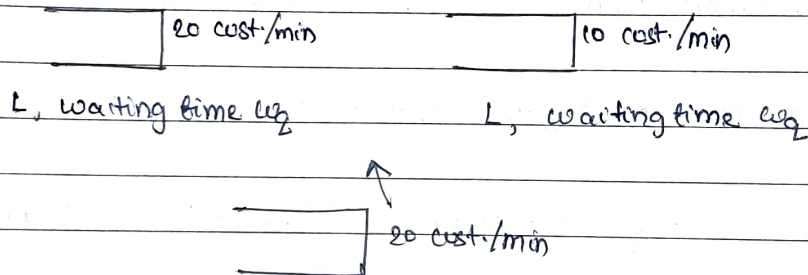 20 cust./min 10 cust./min
L, waiting time wq L, waiting time wq
20 cust./min